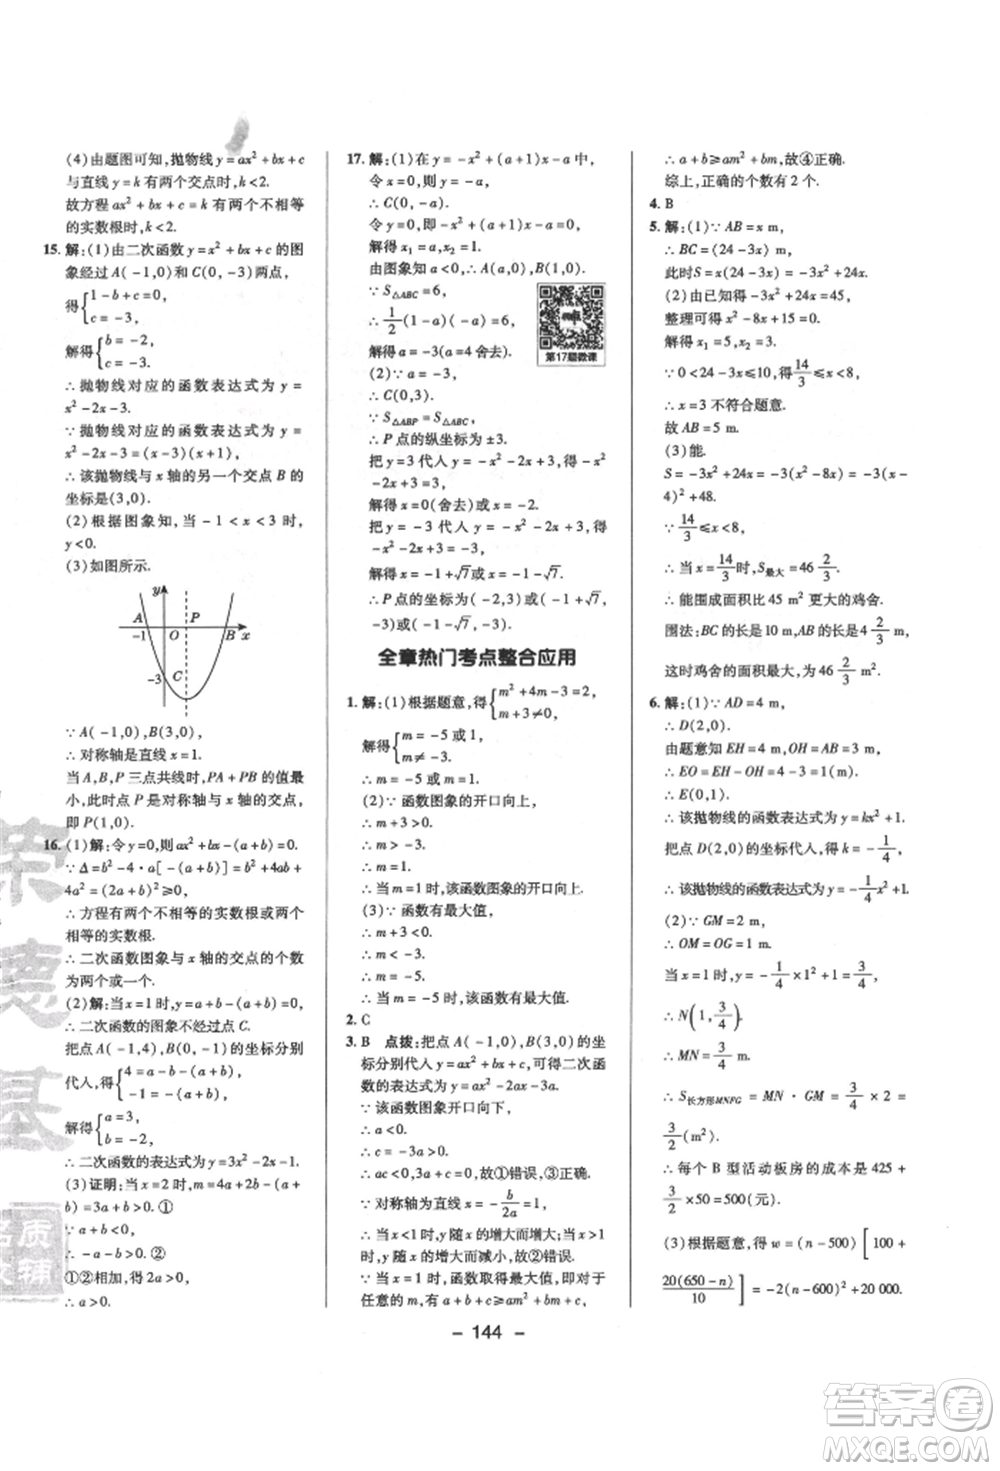 (4)由题图可知,抛物线 y=ax²+bx+c
与直线 y=k 有两个交点时,k<2.
故方程 ax²+bx+c=k 有两个不相等
的实数根时,k<2.
15. 解:(1)由二次函数 y=x²+bx+c 的图
象经过 A(-1,0)和 C(0,-3)两点,
得{1-b+c=0,
c=-3,
解得{b=-2,
c=-3.
∴抛物线对应的函数表达式为 y=
x²-2x-3.
∵抛物线对应的函数表达式为 y=
x²-2x-3=(x-3)(x+1),
∴该抛物线与 x 轴的另一个交点 B 的
坐标是(3,0).
(2)根据图象知,当 -1<x<3 时,
y<0.
(3)如图所示.
y
A
P
-1
O
B
x
-3
C
∵A(-1,0),B(3,0),
∴对称轴是直线 x=1.
当 A,B,P 三点共线时,PA+PB 的值最
小,此时点 P 是对称轴与 x 轴的交点,
即 P(1,0).
16. (1)解:令 y=0,则 ax²+bx-(a+b)=0.
∵Δ=b²-4·a[-(a+b)]=b²+4ab+
4a²=(2a+b)²≥0,
∴方程有两个不相等的实数根或两个
相等的实数根.
∴二次函数图象与 x 轴的交点的个数
为两个或一个.
(2)解:当 x=1 时,y=a+b-(a+b)=0,
∴二次函数的图象不经过点 C.
把点 A(-1,4),B(0,-1)的坐标分别
代入,得{4=a-b-(a+b),
-1=-(a+b),
解得{a=3,
b=-2,
∴二次函数的表达式为 y=3x²-2x-1.
(3)证明:当 x=2 时,y=4a+2b-(a+
b)=3a+b>0,①
∵a+b<0,
∴-a-b>0.②
①②相加,得 2a>0,
∴a>0.
17. 解:(1)在 y=-x²+(a+1)x-a 中,
令 x=0,则 y=-a.
∴C(0,-a).
令 y=0,即 -x²+(a+1)x-a=0,
解得 x₁=a,x₂=1.
由图象知 a<0,∴A(a,0),B(1,0).
∵S△ABC=6,
∴1/2(1-a)(-a)=6,
解得 a=-3(a=4 舍去).
第17题微课
(2)∵a=-3,
∴C(0,3).
∵S△ABP=S△ABC.
∴P 点的纵坐标为 ±3.
把 y=3 代入 y=-x²-2x+3,得 -x²-
2x+3=3,
解得 x=0(舍去)或 x=-2.
把 y=-3 代入 y=-x²-2x+3,得 -x²-
2x+3=-3,
解得 x=-1+√7或 x=-1-√7.
∴P 点的坐标为(-2,3)或(-1+√7,
-3)或(-1-√7,-3).
全章热门考点整合应用
1. 解:(1)根据题意,得{m²+4m-3=2,
m+3≠0,
解得{m=-5或1,
m≠-3.
∴m=-5 或 m=1.
(2)∵函数图象的开口向上,
∴m+3>0.
∴m>-3.
∴m=1.
∴当 m=1 时,该函数图象的开口向上.
(3)∵函数有最大值,
∴m+3<0.
∴m<-3.
∴m=-5.
∴当 m=-5 时,该函数有最大值.
2. C
3. B 点拨:把点 A(-1,0),B(3,0)的坐
标分别代入 y=ax²+bx+c,可得二次函
数的表达式为 y=ax²-2ax-3a.
∵该函数图象开口向下,
∴a<0.
∴c=-3a>0.
∴ac<0,3a+c=0,故①错误,③正确.
∵对称轴为直线 x=-b/2a=1,
∴x<1 时,y 随 x 的增大而增大;当 x>1
时,y 随 x 的增大而减小,故②错误.
∵当 x=1 时,函数取得最大值,∴对于
任意的 m,有 a+b+c≥am²+bm+c.
∴a+b≥am²+bm,故④正确.
综上,正确的个数有 2 个.
4. B
5. 解:(1)∵AB=x m,
∴BC=(24-3x)m.
此时S=x(24-3x)=-3x²+24x.
(2)由已知得 -3x²+24x=45,
整理可得 x²-8x+15=0.
解得 x₁=5,x₂=3.
∵0<24-3x≤10,得 14/3≤x<8,
∴x=3 不符合题意.
故 AB=5 m.
(3)能.
S=-3x²+24x=-3(x²-8x)=-3(x-
4)²+48.
∵14/3≤x<8,
∴当 x=14/3时,S最大=46 2/3.
∴能围成面积比 45 m² 更大的鸡舍.
围法:BC 的长是 10 m,AB 的长是 4 2/3 m,
这时鸡舍的面积最大,为 46 2/3 m².
6. 解:(1)∵AD=4 m,
∴D(2,0).
由题意知 EH=4 m,OH=AB=3 m,
∴EO=EH-OH=4-3=1(m).
∴E(0,1).
∴该抛物线的函数表达式为 y=kx²+1.
把点 D(2,0)的坐标代入,得 k=-1/4.
∴该抛物线的函数表达式为 y=-1/4x²+1.
(2)∵GM=2 m,
∴OM=OG=1 m.
当 x=1 时,y=-1/4×1²+1=3/4,
∴N(1,3/4).
∴MN=3/4 m.
∴S长方形MNFG=MN·GM=3/4×2=
3/2(m²).
∴每个 B 型活动板房的成本是 425+
3/2×50=500(元).
(3)根据题意,得 w=(n-500)[100+
20(650-n)/10]=-2(n-600)²+20 000.
- 144 -
荣德基
品质
答案圈
MXQE.COM